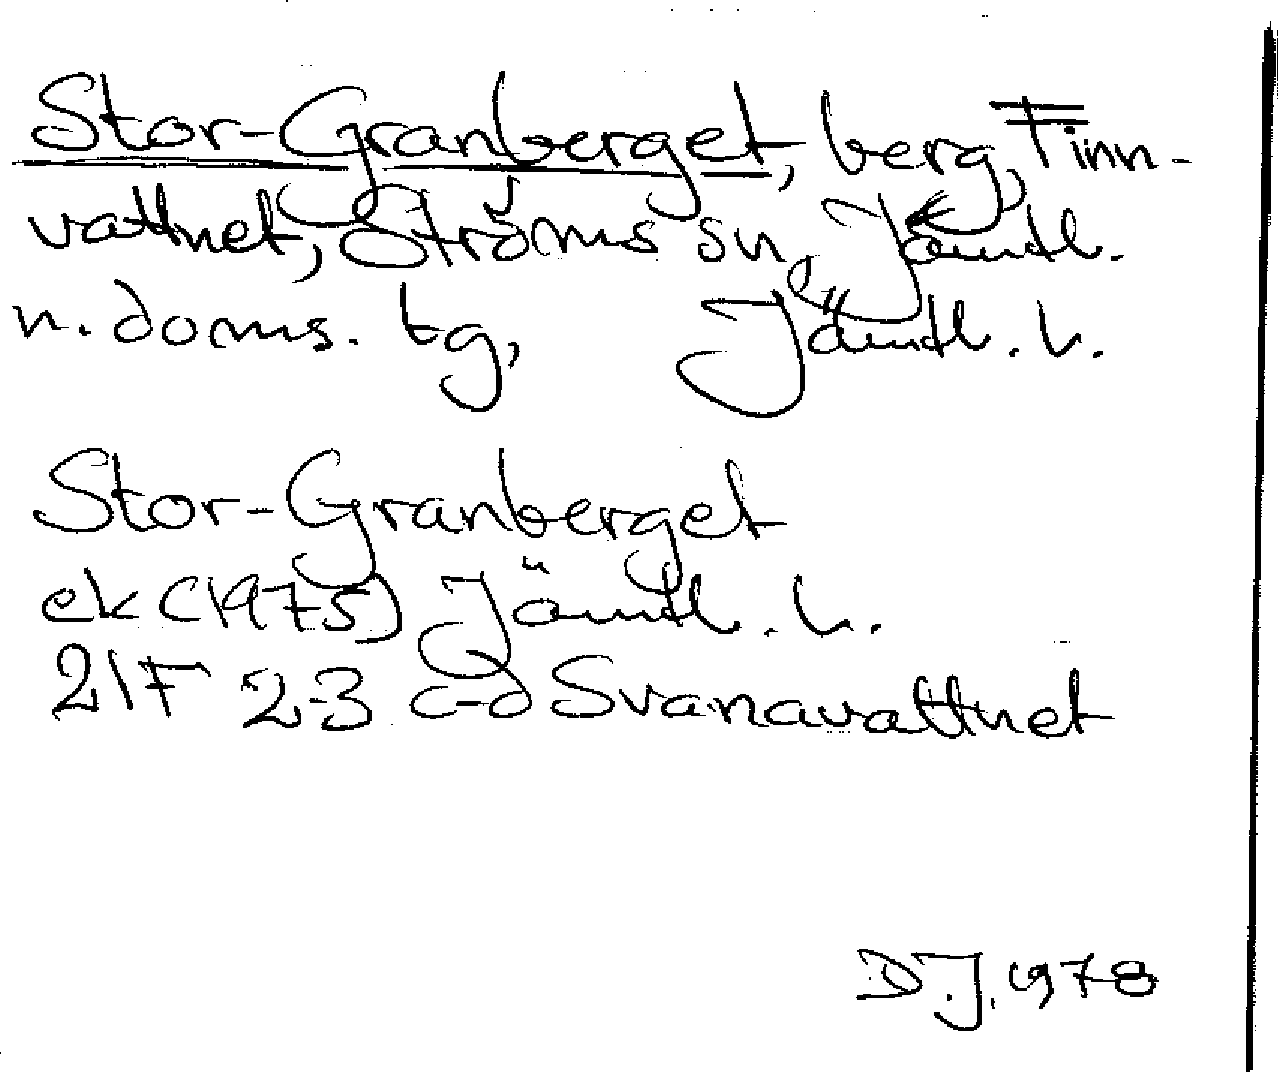 Stor-Granberget, berg, Finn-
vattnet, Ströms sn, Jämtl.
n. doms. tg, Jämtl. l.
Stor-Granberget
ek (1975) Jämtl. l.
21F 2-3 c-d Svanavattnet
D.J. 1978